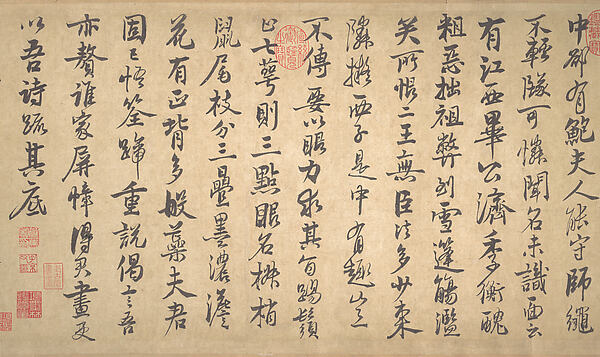 中卻有鮑夫人能守師繩
不輕墜可憐聞名未識面云
有江西畢公濟季衡醜
粗惡拙祖弊到雪篷觴濫
矣所恨二王無臣法多少東
隣擬西子是中有趣豈
不傳要以眼力求其旨踢鬚
止七萼則三點眼名椒梢
鼠尾枝分三疊墨濃澹
花有正背多般蘂夫君
固已悟筌蹄重說偈言吾
亦贅誰家屏幛得君畫更
以吾詩疏其底